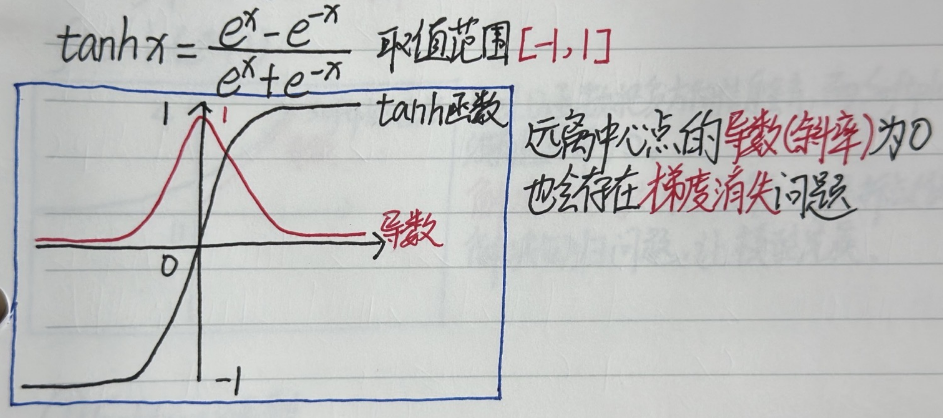 tanh x = (e^x - e^-x)/(e^x + e^-x) 取值范围[-1,1]
1 1 tanh函数
导数
0
-1
远离中心点的导数(斜率)为0
也会存在梯度消失问题